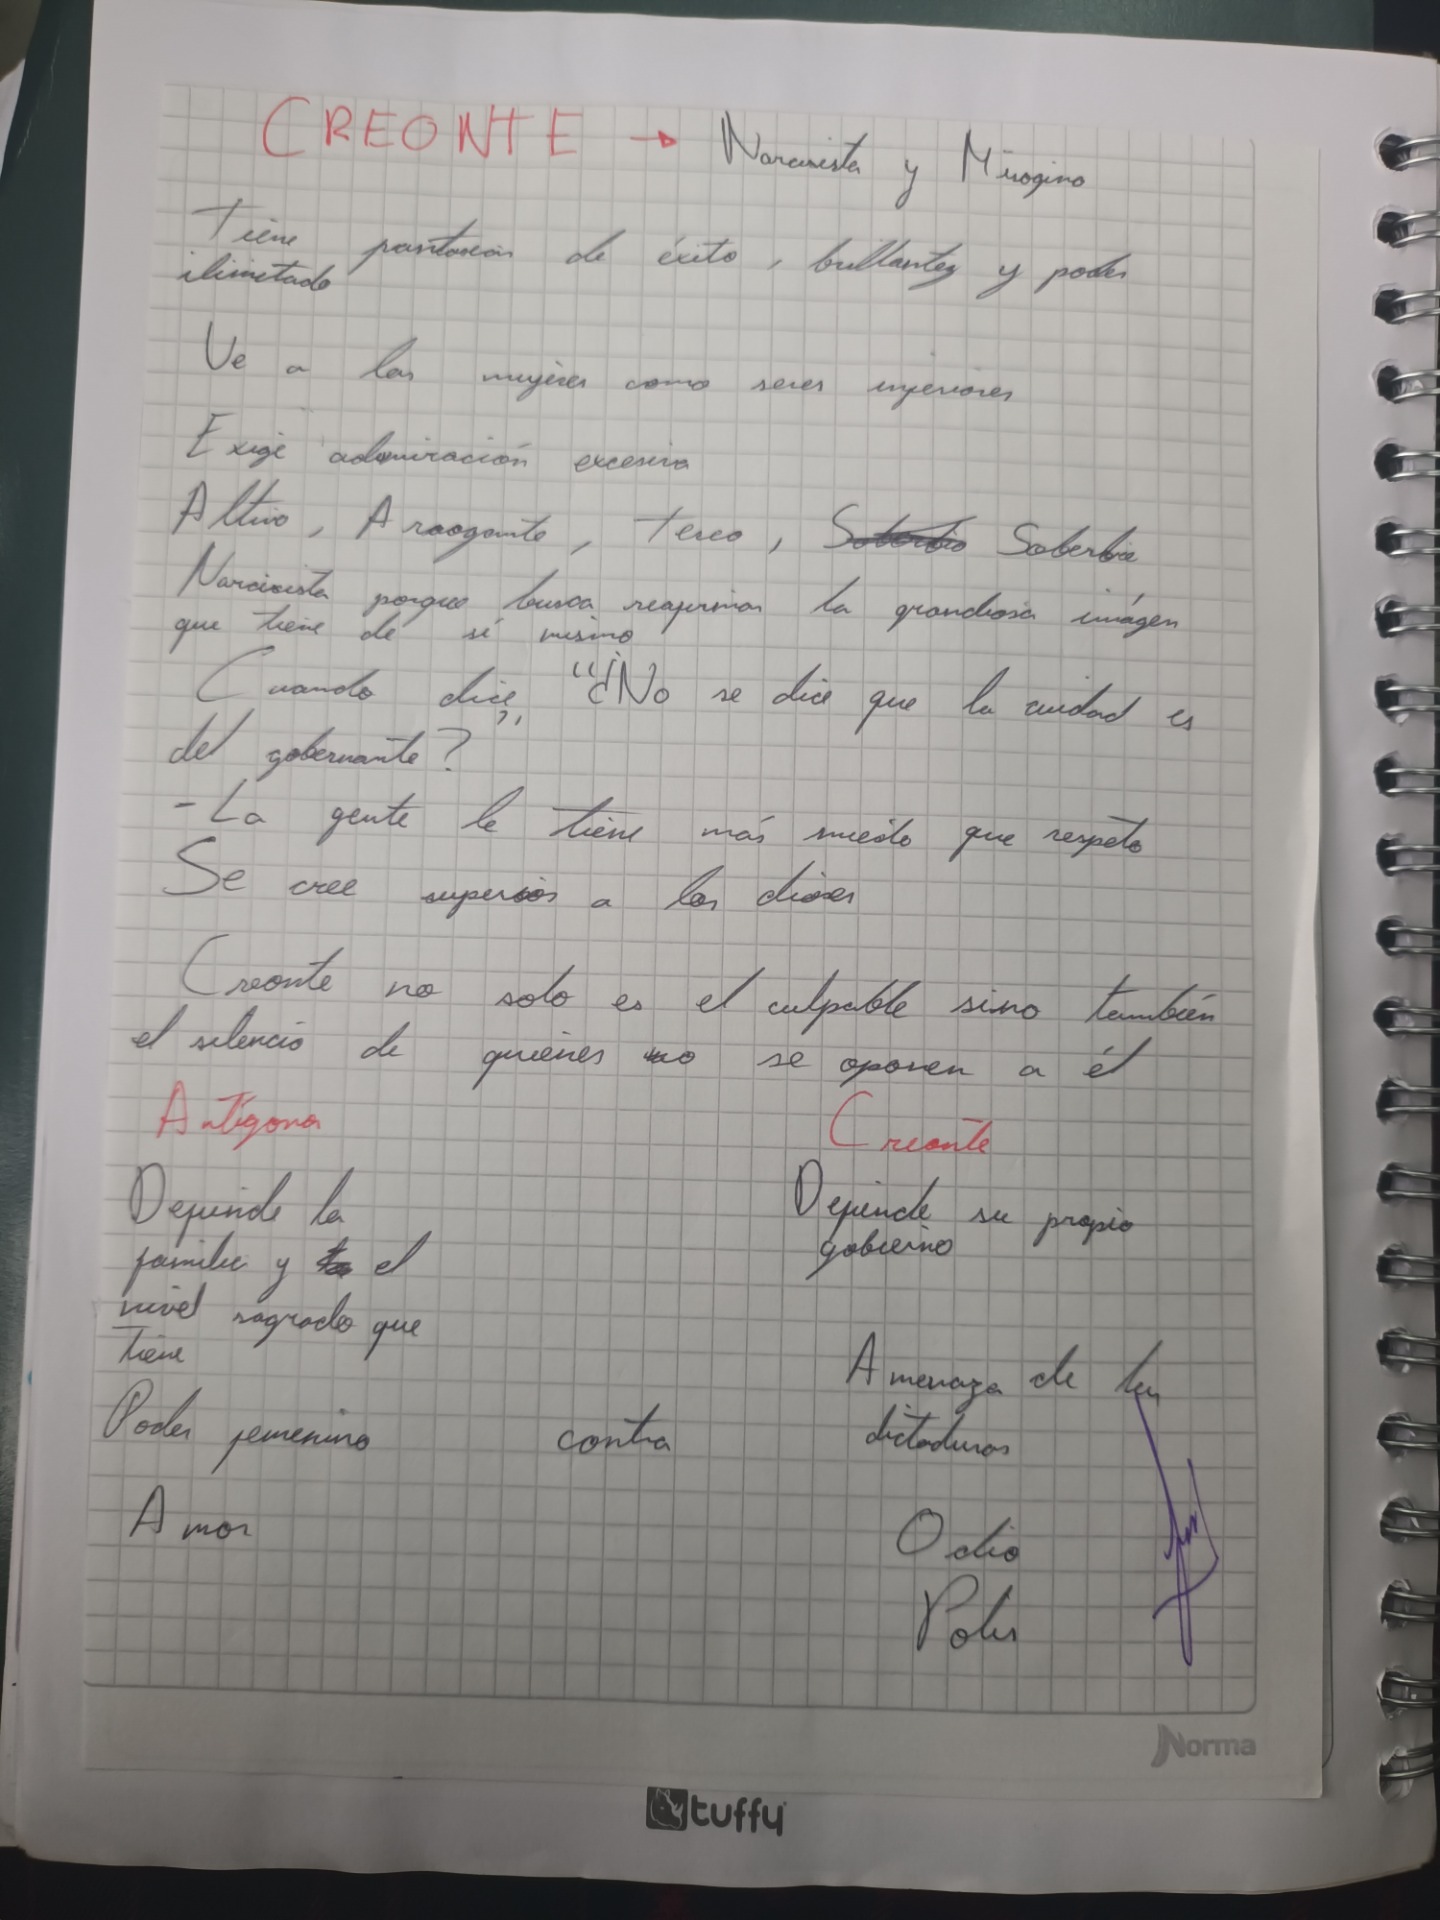 CREONTE → Narcisista y Misogino
Tiene fantasias de éxito, brillantez y poder
ilimitado
Ve a las mujeres como seres inferiores
Exige admiración excesiva
Altivo, Arrogante, Terco, Soberbio Soberbia
Narcisista porque busca reafirmar la grandiosa imágen
que tiene de sí mismo
Cuando dice, "¿No se dice que la cuidad es
del gobernante?"
- La gente le tiene más miedo que respeto
Se cree superior a los dioses
Creonte no solo es el culpable sino también
el silencio de quienes no se oponen a él
Antígona Creonte
Defiende la Defiende su propio
familia y la el gobierno
nivel sagrado que
tiene
Amenaza de las
Poder femenino contra dictaduras
Amor Odio
Polis
Norma
tuffy